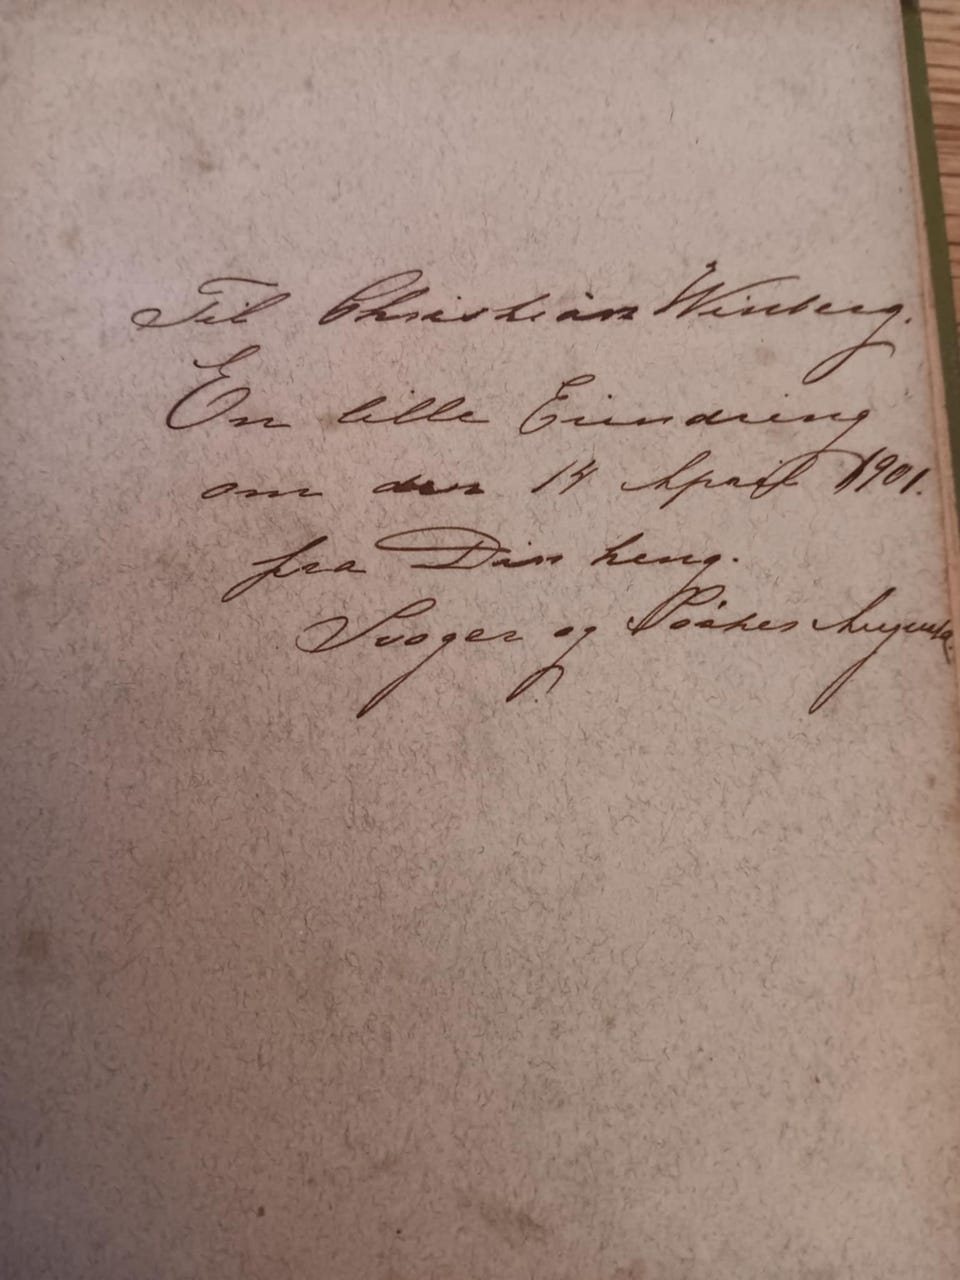 Til Christian Winberg.
En lille Erindring
om den 14 April 1901.
fra Din heng.
Svoger og Augusta.